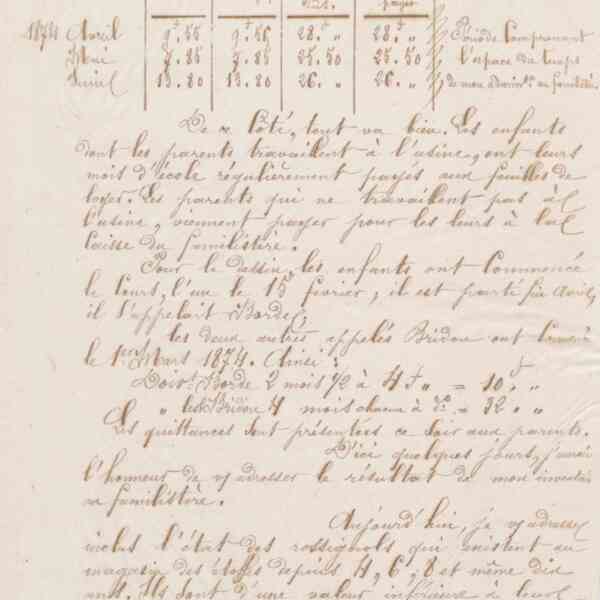 payer
1874 Avril 9.55 9.55 28. " 28. " Période Comprenant
Mai 7.85 7.85 25.50 25.50 l'espace du temps
Juin 13.80 13.80 26. " 26. " de mon au familist.
De ce Côté, tout va bien. Les enfants
dont les parents travaillent à l'usine, ont leurs
mois d'école régulièrement payés aux feuilles de
loyer. Les parents qui ne travaillent pas à
l'usine, viennent payer pour les leurs à la
Caisse du familistère.
Pour le dessin, les enfants ont Commencé
le Cours, l'un le 15 février, il est parti fin Avril,
il s'appelait Borde,
les deux autres appelés Bridou ont
le 1er Mars 1874. Ainsi :
Doiv.t Borde 2 mois 1/2 à 4f " = 10f "
" les Bridou 4 mois chacun à do = 32 " "
Les quittances sont présentées ce soir aux parents.
D'ici quelques jours, j'aurai
l'honneur de vs adresser le résultat de mon
au familistère.
Aujourd'hui, je vs adresse
inclus l'état des rossignols qui existent au
magasin des étoffes depuis 4, 6, 8 et même dix
ans. Ils sont d'une valeur inférieure à leur